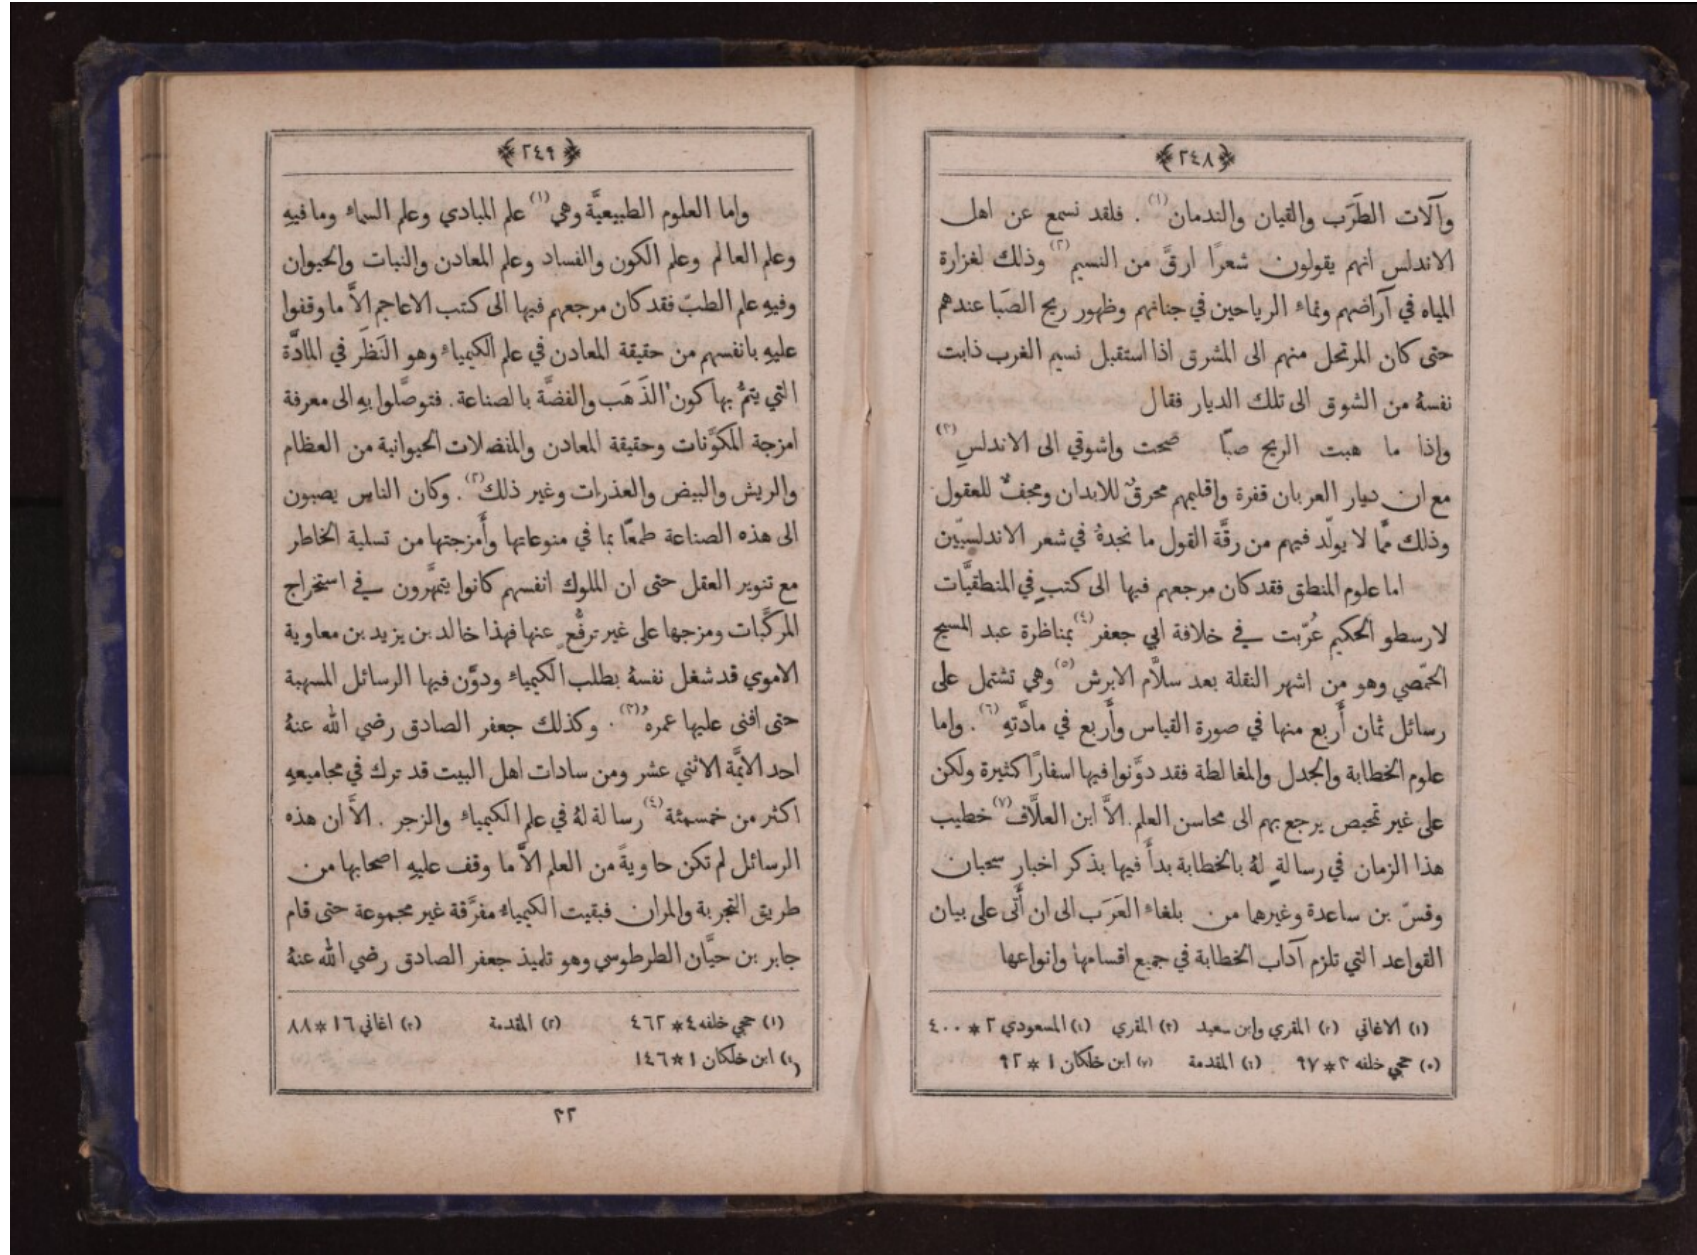 ﴿٢٤٨﴾
وآلات الطَرَب والقيان والندمان(١) . فلقد نسمع عن اهل
الاندلس انهم يقولون شعرًا ارقَّ من النسيم(٢) وذلك لغزارة
المياه في آراضهم ونماء الرياحين في جنانهم وظهور ريح الصَبا عندهم
حتى كان المرتحل منهم الى المشرق اذا استقبل نسيم الغرب ذابت
نفسهُ من الشوق الى تلك الديار فقال
وإذا ما هبت الريح صبًا صحت واشوقي الى الاندلسِ(٣)
مع ان ديار العربان قفرة وإقليمهم محرقٌ للابدان ومجفٌ للعقول
وذلك ممَّا لا يولّد فيهم من رقَّة القول ما نجدهُ في شعر الاندلسيّين
اما علوم المنطق فقد كان مرجعهم فيها الى كتبٍ في المنطقيَّات
لارسطو الحكيم عُرّبت في خلافة ابي جعفر(٤) بمناظرة عبد المسيح
الحمّصي وهو من اشهر النقلة بعد سلاَّم الابرش(٥) وهي تشتمل على
رسائل ثمان أَربع منها في صورة القياس وأَربع في مادَّتهِ(٦) . واما
علوم الخطابة والجدل والمغالطة فقد دوَّنوا فيها اسفارًا كثيرة ولكن
على غير تمحيص يرجع بهم الى محاسن العلم. الاَّ ابن العلَّاف(٧) خطيب
هذا الزمان في رسالةٍ لهُ بالخطابة بدأَ فيها بذكر اخبار سحبان
وقسّ بن ساعدة وغيرهما من بلغاء العَرَب الى ان أَتى على بيان
القواعد التي تلزم آداب الخطابة في جميع اقسامها وانواعها
(١) الاغاني (٢) المقري وابن سعيد (٣) المقري (٤) المسعودي ٢ * ٤٠٠
(٥) حجي خلفه ٣ * ٩٧ (٦) المقدمة (٧) ابن خلكان ١ * ٩٢
﴿٢٤٩﴾
وإما العلوم الطبيعيَّة وهي(١) علم المبادي وعلم السماء وما فيهِ
وعلم العالم وعلم الكون والفساد وعلم المعادن والنبات والحيوان
وفيهِ علم الطبّ فقد كان مرجعهم فيها الى كتب الاعاجم الاَّ ما وقفوا
عليهِ بانفسهم من حقيقة المعادن في علم الكيمياء وهو النَظَر في المادَّة
التي يتمُّ بها كون الذَهَب والفضَّة بالصناعة. فتوصَّلوا بهِ الى معرفة
امزجة المكوَّنات وحقيقة المعادن والمنضلات الحيوانية من العظام
والريش والبيض والعذرات وغير ذلك(٢) . وكان الناس يصبون
الى هذه الصناعة طمعًا بما في منوعاتها وأَمزجتها من تسلية الخاطر
مع تنوير العقل حتى ان الملوك انفسهم كانوا يتمهَّرون في استخراج
المركَّبات ومزجها على غير ترفُّعٍ عنها فهذا خالد بن يزيد بن معاوية
الاموي قد شغل نفسهُ بطلب الكيمياء ودوَّن فيها الرسائل المسهبة
حتى افنى عليها عمرهُ(٣) . وكذلك جعفر الصادق رضي الله عنهُ
احد الائمَّة الاثني عشر ومن سادات اهل البيت قد ترك في مجاميعهِ
اكثر من خمسمئة(٤) رسالة لهُ في علم الكيمياء والزجر . الاَّ ان هذه
الرسائل لم تكن حاويةً من العلم الاَّ ما وقف عليهِ اصحابها من
طريق التجربة والمران فبقيت الكيمياء مفرَّقة غير مجموعة حتى قام
جابر بن حيَّان الطرطوسي وهو تلميذ جعفر الصادق رضي الله عنهُ
(١) حجي خلفه ٤ * ٤٦٢ (٢) المقدمة (٣) اغاني ١٦ * ٨٨
(٤) ابن خلكان ١ * ١٤٦
٣٢